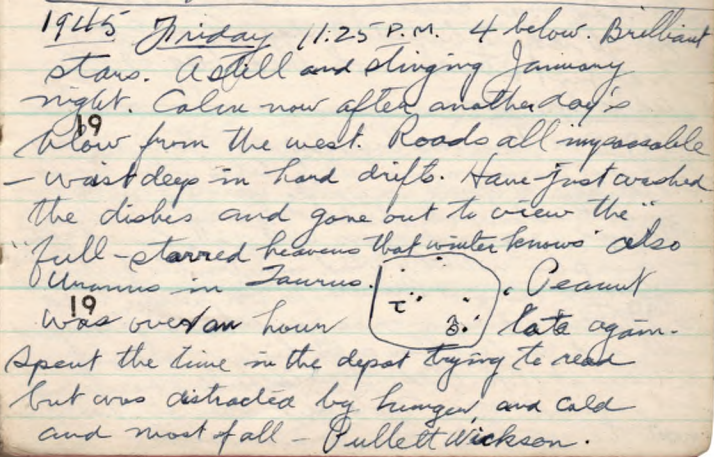 1945 Friday 11:25 P.M. 4 below. Brilliant
stars. A still and stinging January
night. Calm now after another day's
19
blow from the west. Roads all impassable
– waist deep in hard drifts. Have just washed
the dishes and gone out to view the "
"full-starred heavens that winter knows" also
Uranus in Taurus. Peanut
19
was over an hour late again.
τ
Spent the time in the depot trying to read
but was distracted by hunger, and cold
and most of all – Pullett Wickson.